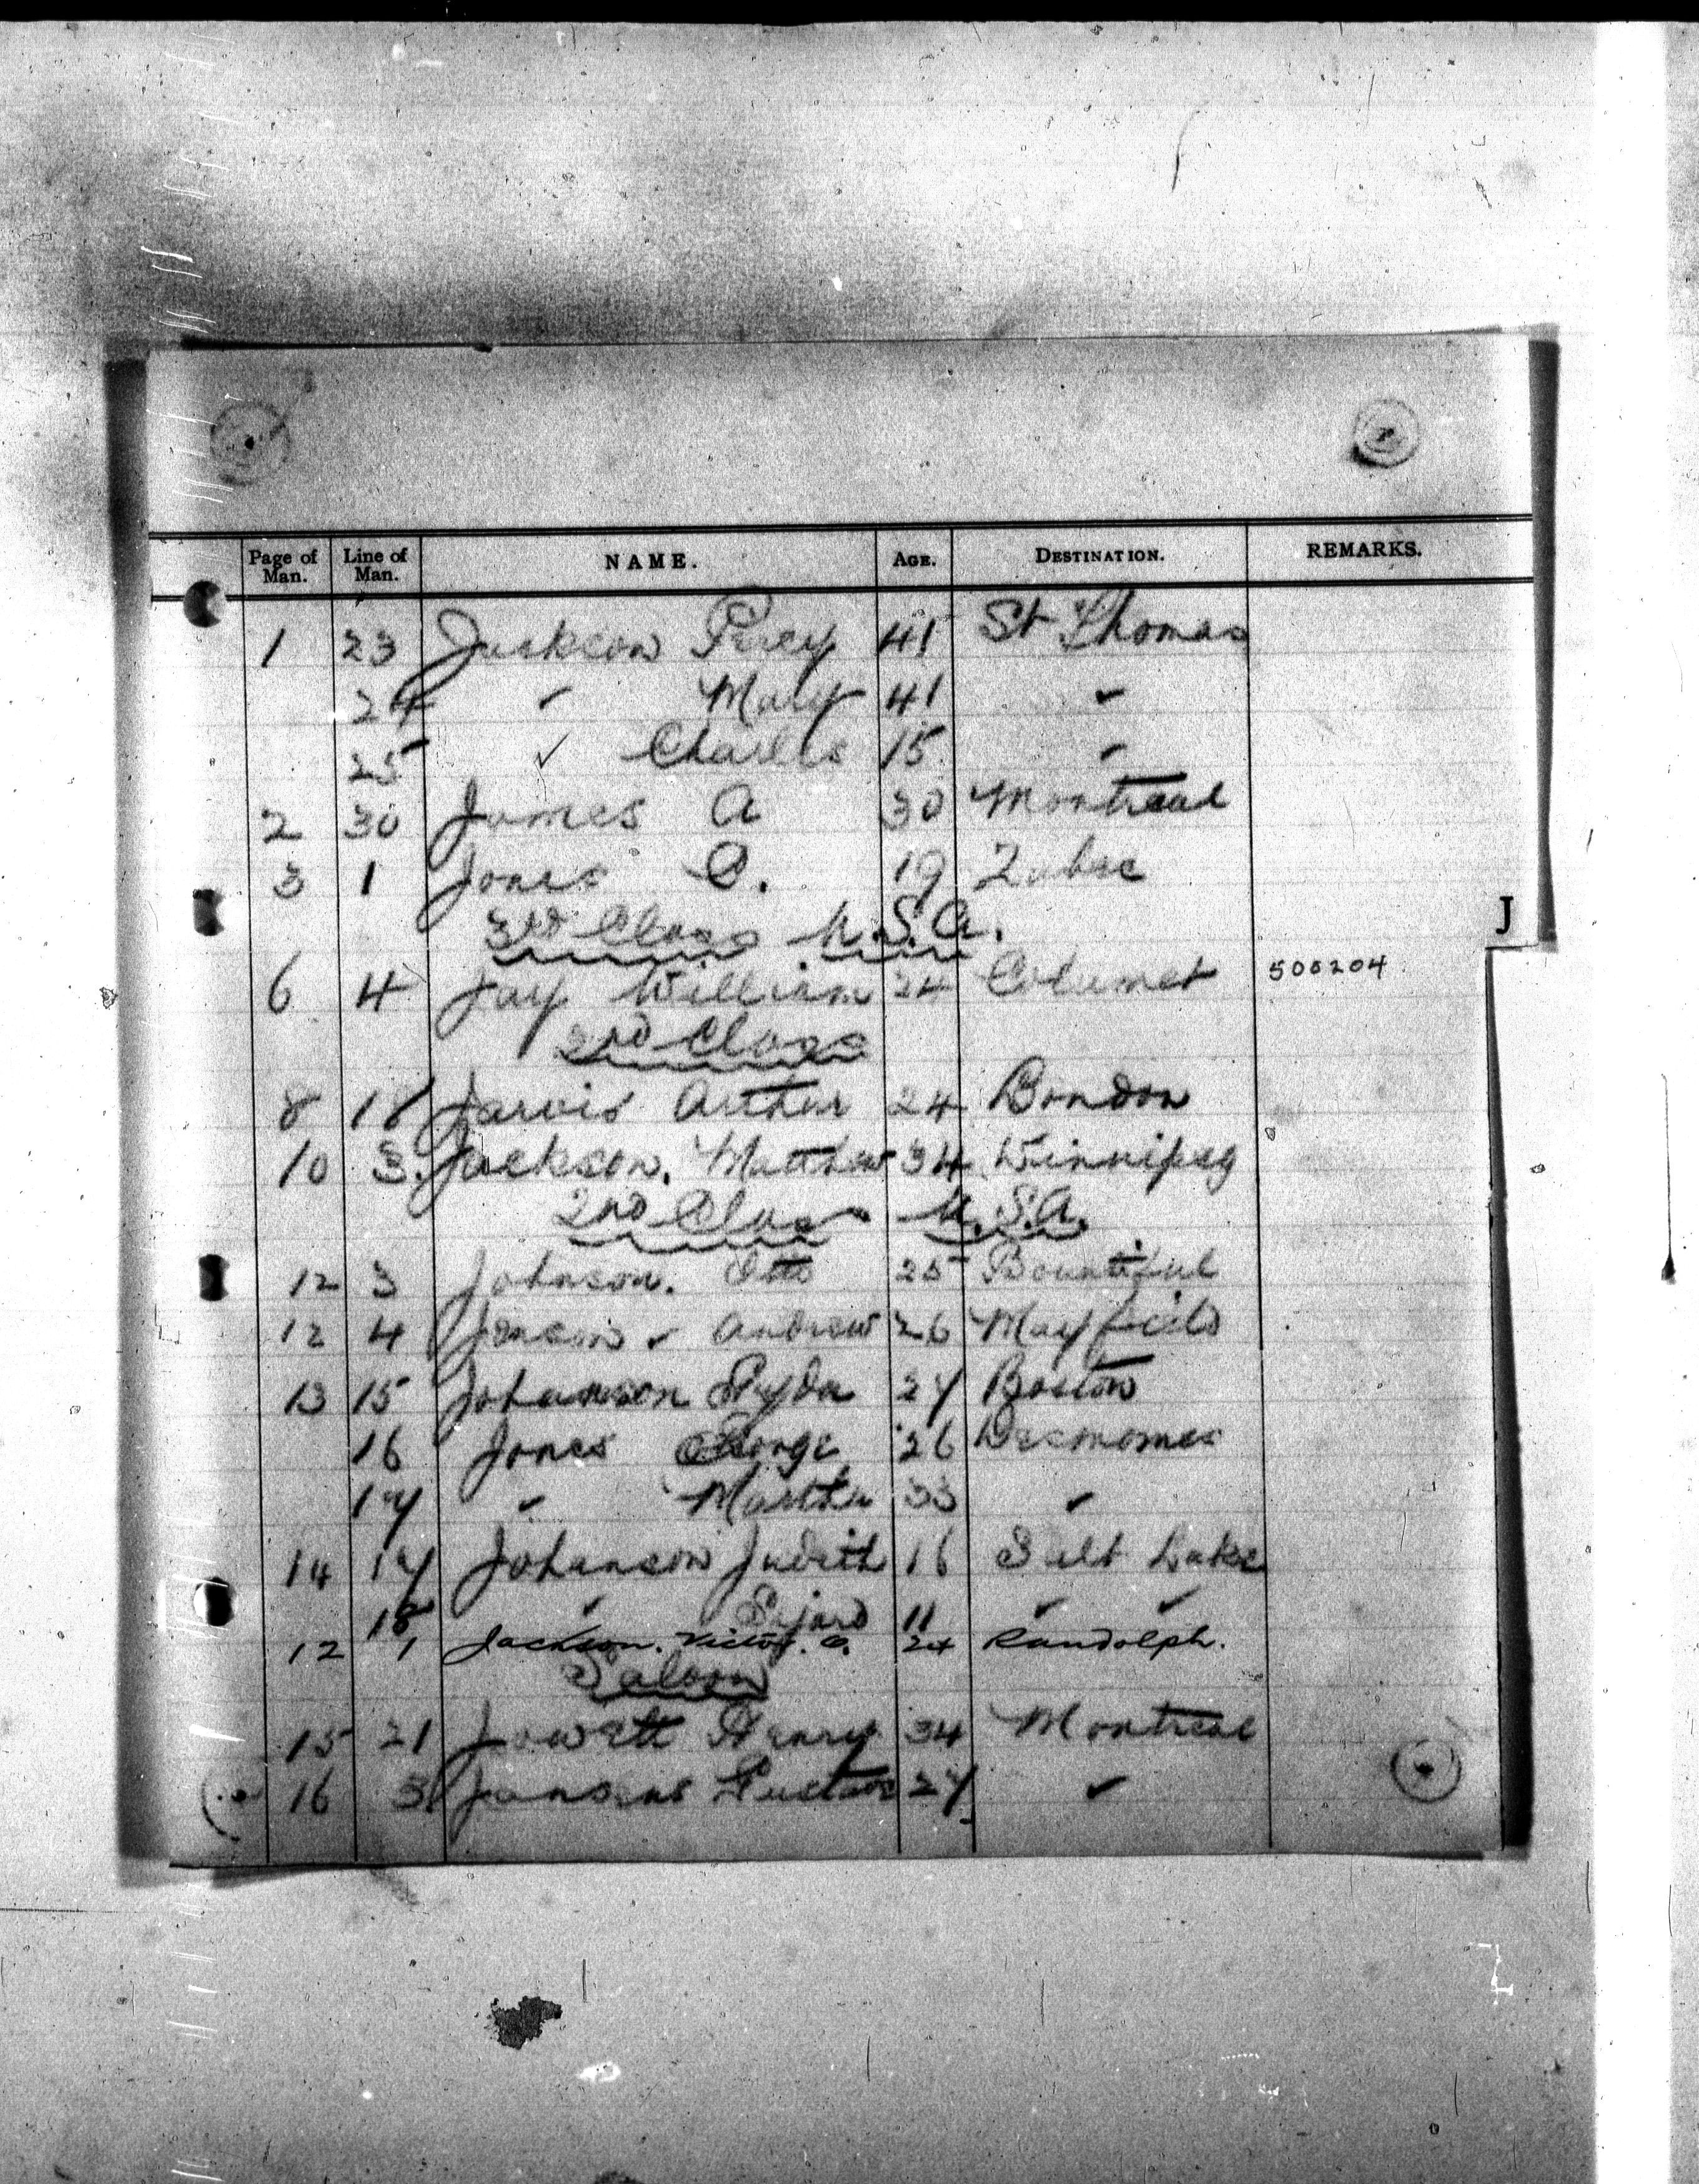 Page of Man. Line of Man. NAME. AGE. DESTINATION. REMARKS.
1 23 Jackson Percy 41 St Thomas
24 " Mary 41 "
25 " Charles 15 "
2 30 James A 30 Montreal
3 1 Jones C. 19 Qubec
3rd Class U.S.A.
J
6 4 Jay William 24 Calumet 500204
2nd Class
8 18 Jarvis Arthur 24 London
10 3. Jackson. Matthew 34 Winnipeg
2nd Class U.S.A.
12 3 Johnson. Otto 25 Bountiful
12 4 Andrew 26 Mayfield
13 15 Johanson 27 Boston
16 Jones George 26 Desmoines
17 " Martha 33 "
14 17 Johanson Judith 16 Salt Lake
18 " 11 " "
12 1 Jackson. Victor. C. 24 Randolph.
Saloon
15 21 Jowett Henry 34 Montreal
16 3 Jansens Gustave 27 "